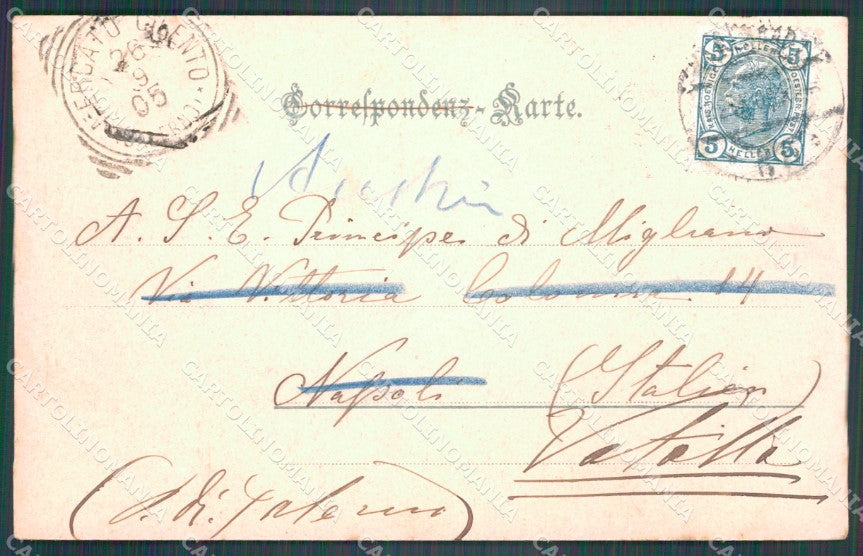 MERCATO CILENTO
Correspondenz-Karte.
5 HELLER 5
Austria
A. S. E. Principe di Migliano
Via Vittoria Colonna 14
Napoli (Italien)
Vatolla
(P. di Salerno)
CARTOLINOMANIA